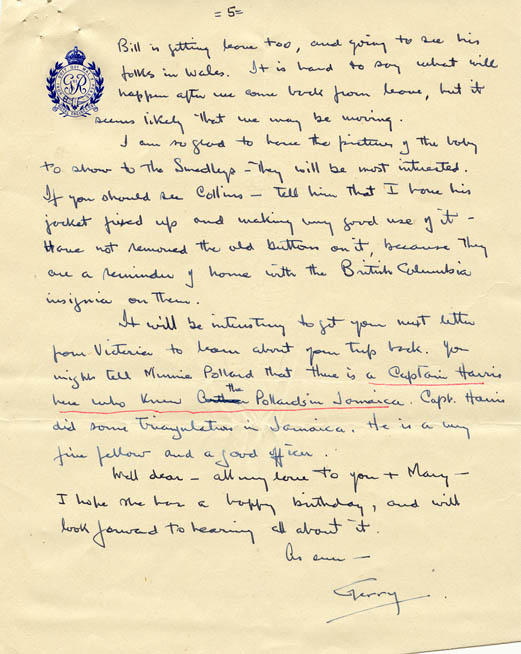 = 5 =
Bill is getting leave too, and going to see his
folks in Wales. It is hard to say what will
happen after we come back from leave, but it
seems likely that we may be moving.
I am so glad to have the pictures of the baby
to show to the Smedleys - They will be most interested.
If you should see Collins - tell him that I have his
jacket fixed up and making very good use of it -
Have not removed the old buttons on it, because they
are a reminder of home with the British Columbia
insignia on them.
It will be interesting to get your next letter
from Victoria to learn about your trip back. You
might tell Minnie Pollard that there is a Captain Harris
here who knew the Pollards in Jamaica. Capt. Harris
did some triangulation in Jamaica. He is a very
fine fellow and a good officer.
Well dear - all my love to you + Mary -
I hope she has a happy birthday, and will
look forward to hearing all about it.
As ever -
Gerry